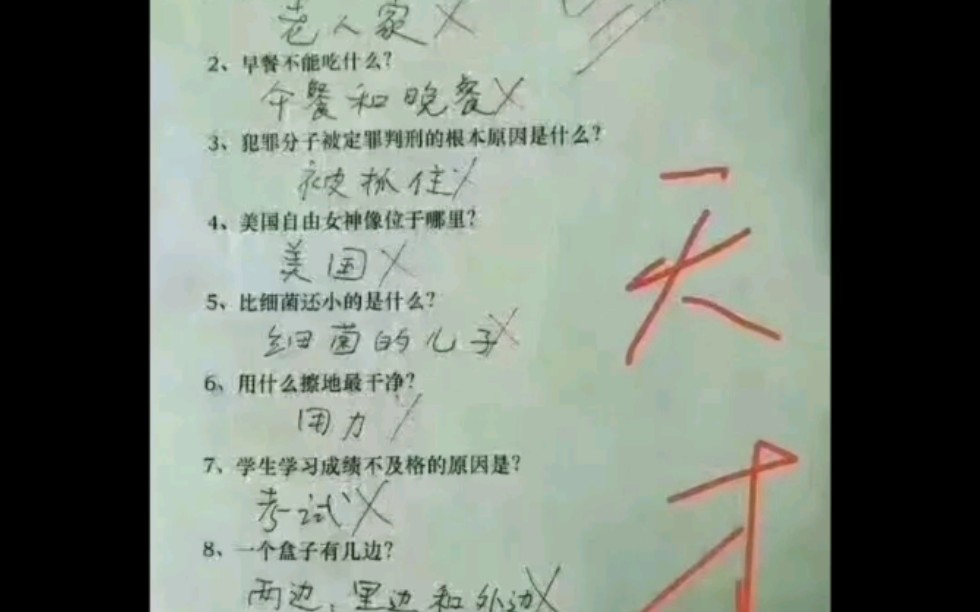 老人家
2、早餐不能吃什么?
午餐和晚餐
3、犯罪分子被定罪判刑的根本原因是什么?
被抓住
4、美国自由女神像位于哪里?
美国
5、比细菌还小的是什么?
细菌的儿子
6、用什么擦地最干净?
用力
7、学生学习成绩不及格的原因是?
考试
8、一个盒子有几边?
两边,里边和外边
天才